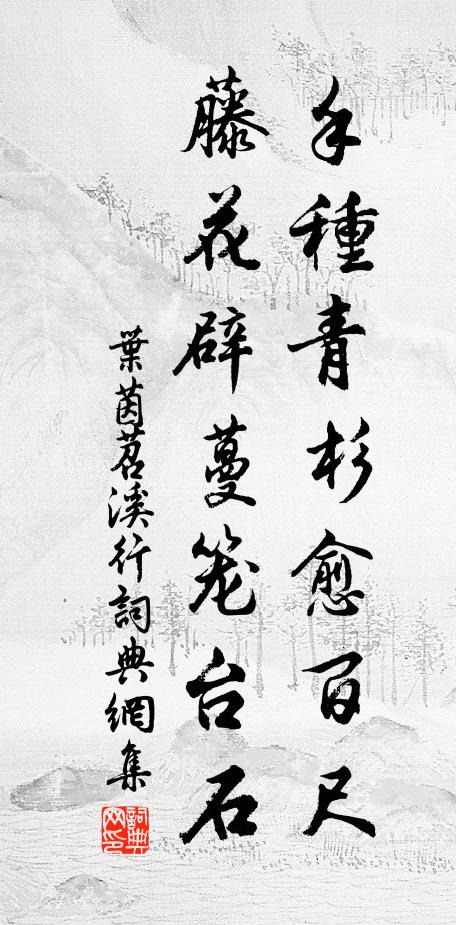 手種青杉愈百尺
藤花辟蔓笼台石
葉茵苕溪行詞典網集
詞典网印